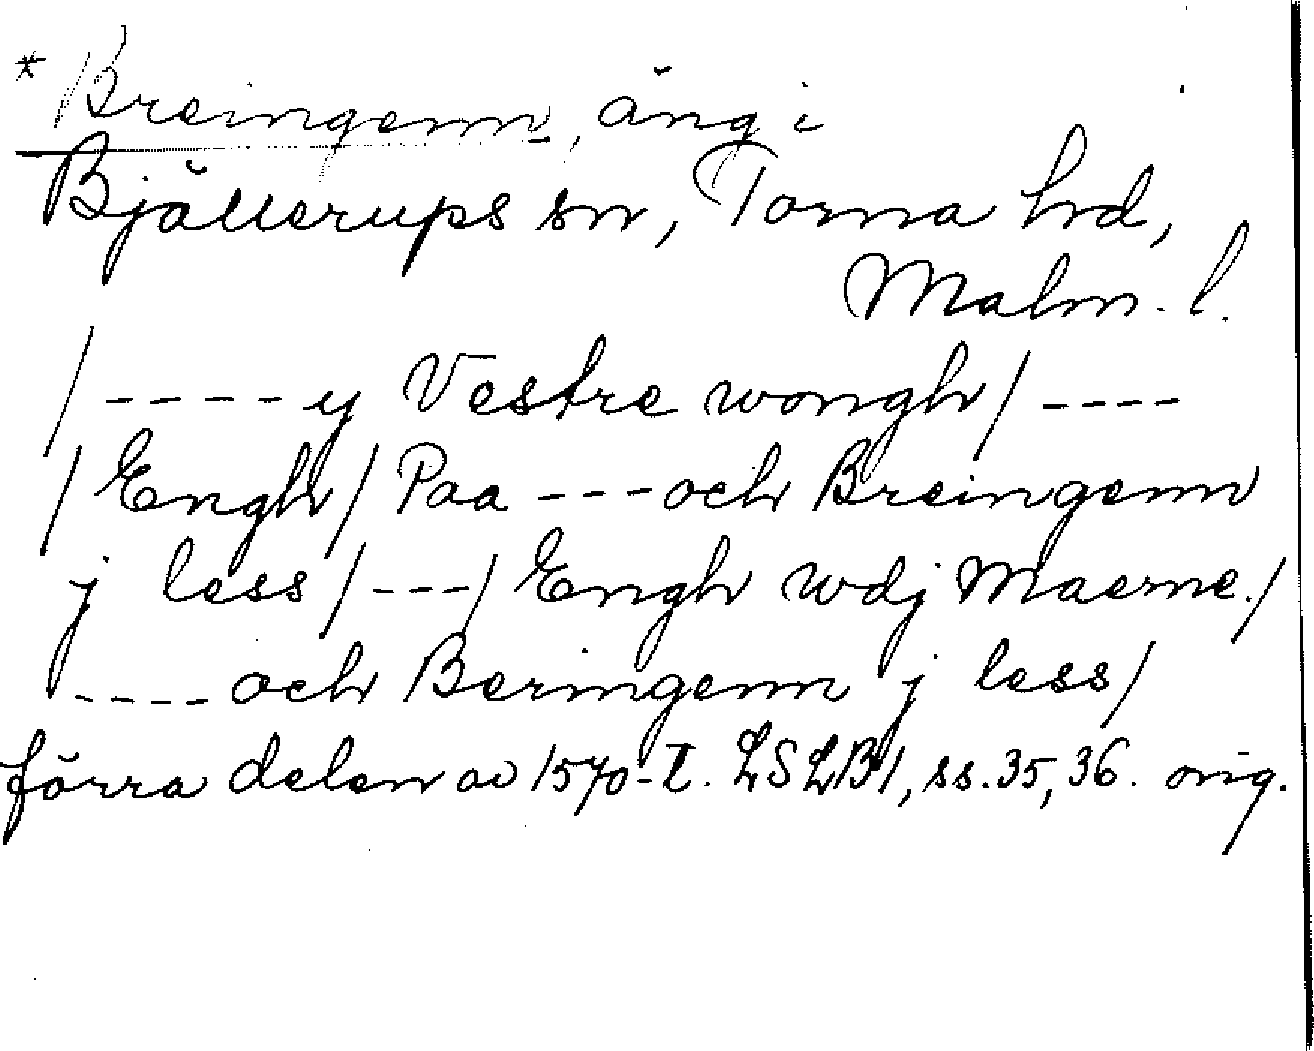 * Breingenn, äng i
Bjällerups sn, Torna hd,
Malm. l.
/ - - - - - y Vestre wongh / - - - -
/ Engh / Paa - - - och Breingenn
j less / - - - / Engh wdj Maerne. /
- - - - och Beringenn j less /
förra delen av 1570-t. LSLB1, ss. 35, 36. orig.